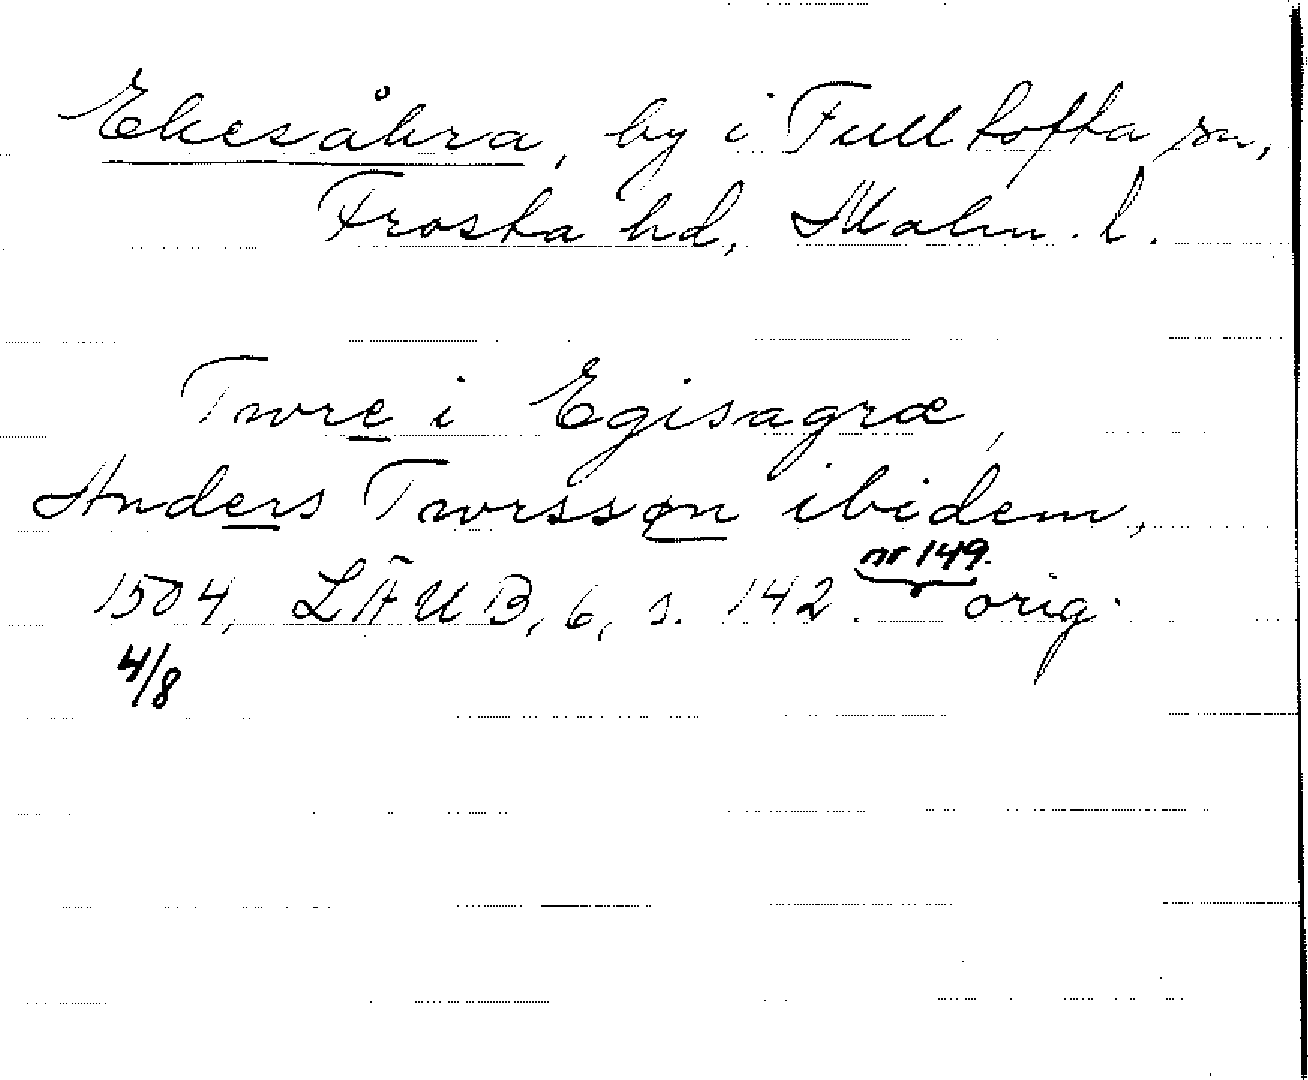 Ekesåkra, by i Fulltofta sn,
Frosta hd, Malm. l.
Twre i Egisagræ,
Anders Twrssøn ibidem,
nr 149.
1504, LÄUB, 6, s. 142. orig.
4/8